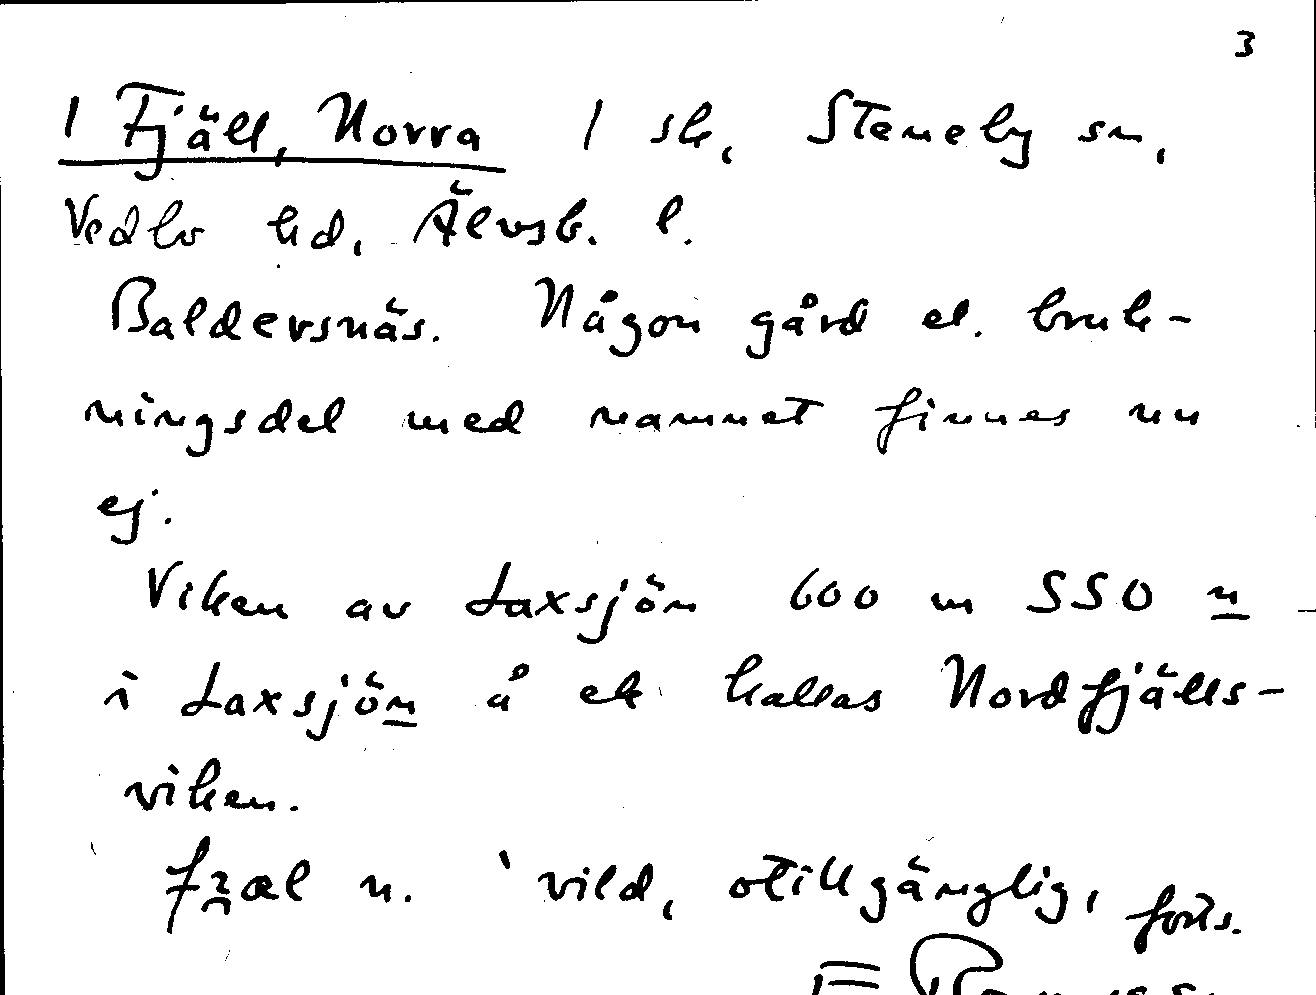 3
1 Fjäll, Norra 1 sk, Steneby sn,
Vedbo hd, Älvsb. l.
Baldersnäs. Någon gård el. bruk-
ningsdel med namnet finnes nu
ej.
Viken av Laxsjön 600 m SSO n
i Laxsjön å ek kallas Nordfjälls-
viken.
n. 'vild, otillgänglig, forts.